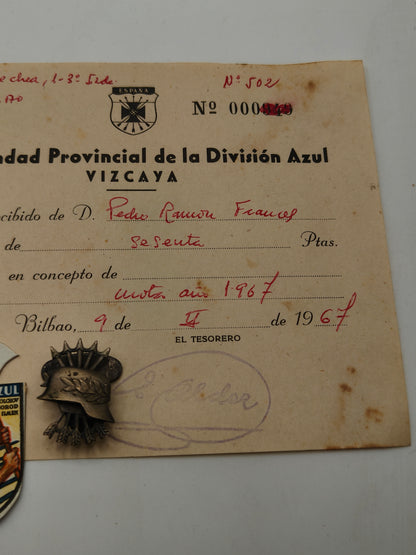 1-3º Izda.
Nº 502
ESPAÑA
Nº 000
ndad Provincial de la División Azul
VIZCAYA
cibido de D. Pedro Ramón Frances
de sesenta Ptas.
en concepto de
cuota año 1967
Bilbao, 9 de VI de 1967
EL TESORERO
ZUL